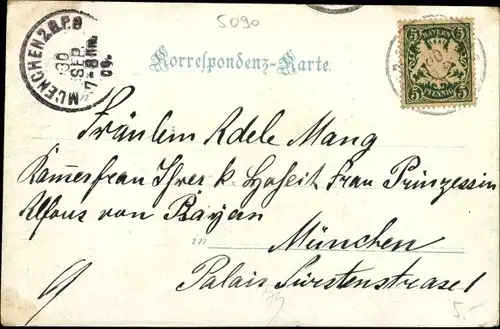 5090
MUENCHEN 2.B.P.8
30
SEP.
7-8 Nm.
00.
BAYERN
5 5
5 5
PFENNIG
Korrespondenz-Karte.
Fräulein Adele Mang
Kammerfrau Ihrer k. Hoheit Frau Prinzessin
Alfons von Bayern
in München
Palais Fürstenstrasse 1
5.-